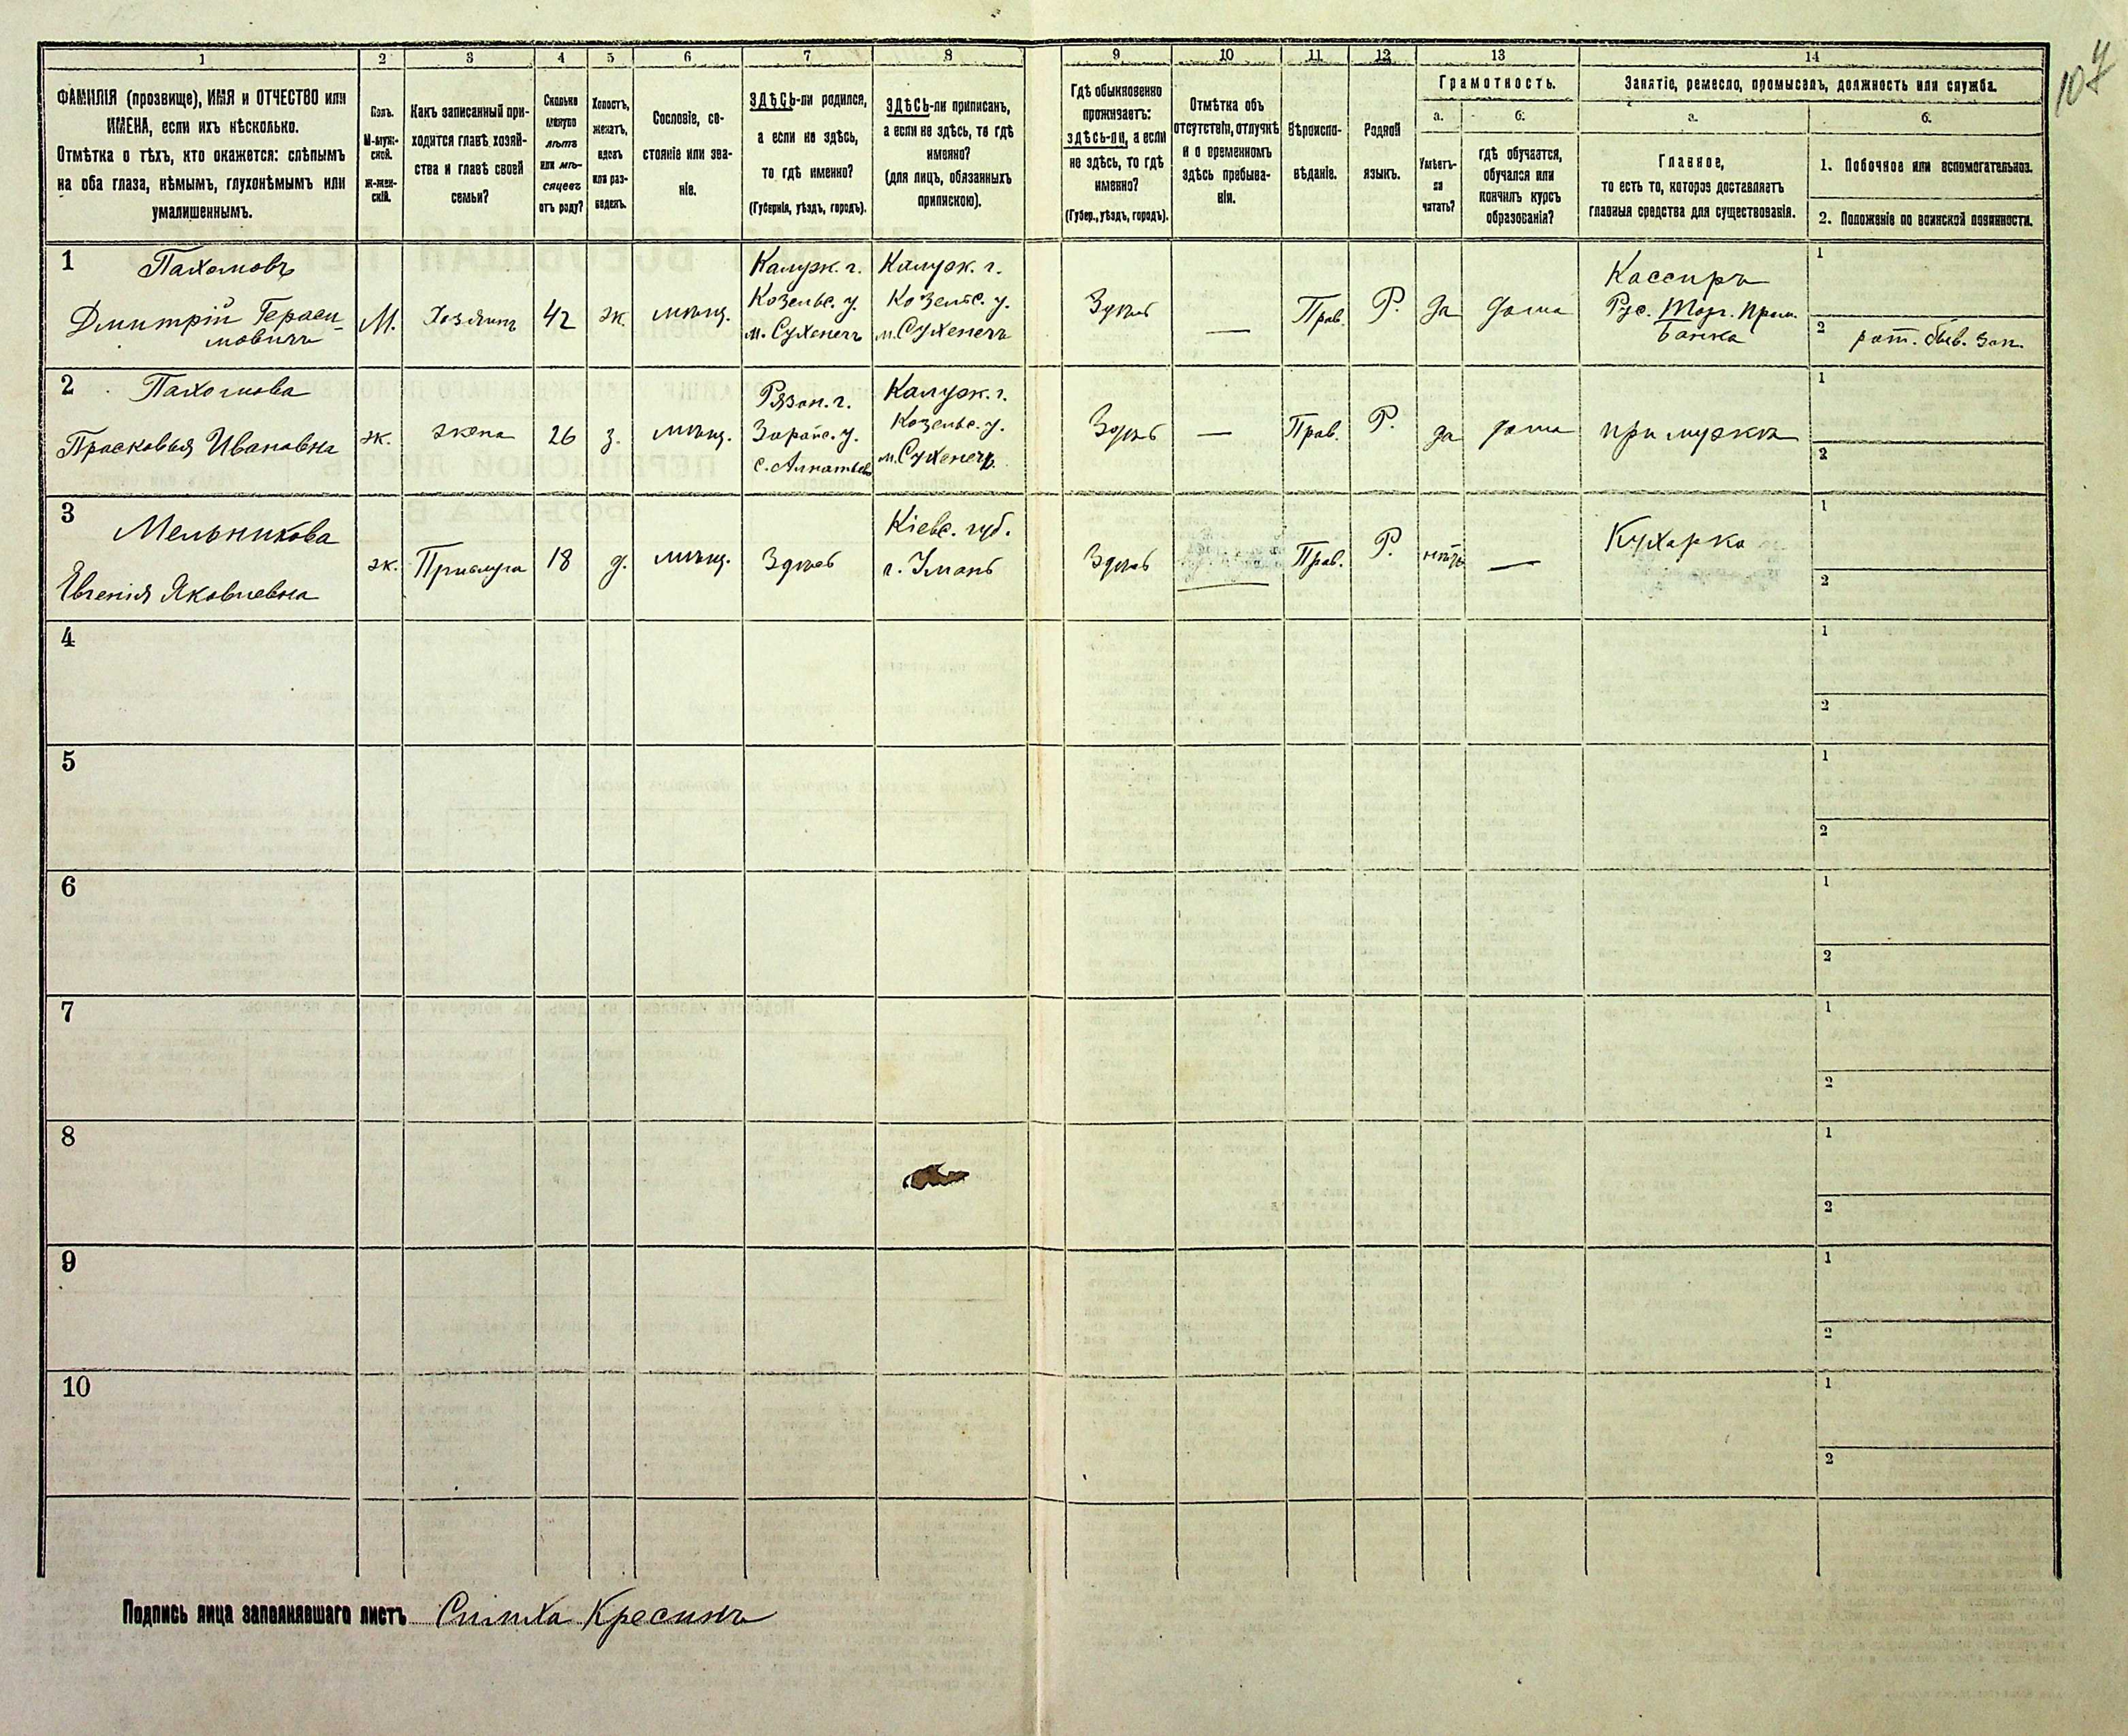 107
1 2 3 4 5 6 7 8 9 10 11 12 13 14
ФАМИЛІЯ (прозвище), ИМЯ и ОТЧЕСТВО или
ИМЕНА, если ихъ нѣсколько.
Отмѣтка о тѣхъ, кто окажется: слѣпымъ
на оба глаза, нѣмымъ, глухонѣмымъ или
умалишеннымъ.
Полъ.
М-муж-
ской.
ж-жен-
скій.
Какъ записанный при-
ходится главѣ хозяй-
ства и главѣ своей
семьи?
Сколько
минуло
лѣтъ
или мѣ-
сяцевъ
отъ роду?
Холостъ,
женатъ,
вдовъ
или раз-
веденъ.
Сословіе, со-
стояніе или зва-
ніе.
ЗДѢСЬ-ли родился,
а если не здѣсь,
то гдѣ именно?
(Губернія, уѣздъ, городъ).
ЗДѢСЬ-ли приписанъ,
а если не здѣсь, то гдѣ
именно?
(для лицъ, обязанныхъ
припискою).
Гдѣ обыкновенно
проживаетъ:
здѣсь-ли, а если
не здѣсь, то гдѣ
именно?
(Губер., уѣздъ, городъ).
Отмѣтка объ
отсутствіи, отлучкѣ
и о временномъ
здѣсь пребыва-
ніи.
Вѣроиспо-
вѣданіе.
Родной
языкъ.
Грамотность.
а.
Умѣетъ-
ли
читать?
б.
гдѣ обучается,
обучался или
кончилъ курсъ
образованія?
Занятіе, ремесло, промыселъ, должность или служба.
а.
Главное,
то есть то, которое доставляетъ
главныя средства для существованія.
б.
1. Побочное или вспомогательное.
2. Положеніе по воинской повинности.
1
Пахомовъ
Дмитрій Гераси-
мовичъ
М.
Хозяинъ
42
ж.
мѣщ.
Калуж. г.
Козельс. у.
м. Сухеничъ
Калуж. г.
Козельс. у.
м. Сухеничъ
Здѣсь
—
Прав.
Р.
да
дома
Кассиръ
Рус. Торг. Пром.
Банка
1
2 рат. быв. зап.
2
Пахомова
Прасковья Ивановна
ж.
жена
26
з.
мѣщ.
Рязан. г.
Зарайс. у.
Калуж. г.
Козельс. у.
м. Сухеничъ
Здѣсь
—
Прав.
Р.
да
дома
при мужѣ
1
2
3
Мельникова
Евгенія Яковлевна
ж.
Прислуга
18
д.
мѣщ.
Здѣсь
Кіевс. губ.
г. Умань
Здѣсь
Прав.
Р.
нѣтъ
—
Кухарка
1
2
4
1
2
5
1
2
6
1
2
7
1
2
8
1
2
9
1
2
10
1
2
Подпись лица заполнявшаго листъ Симха Кресинъ